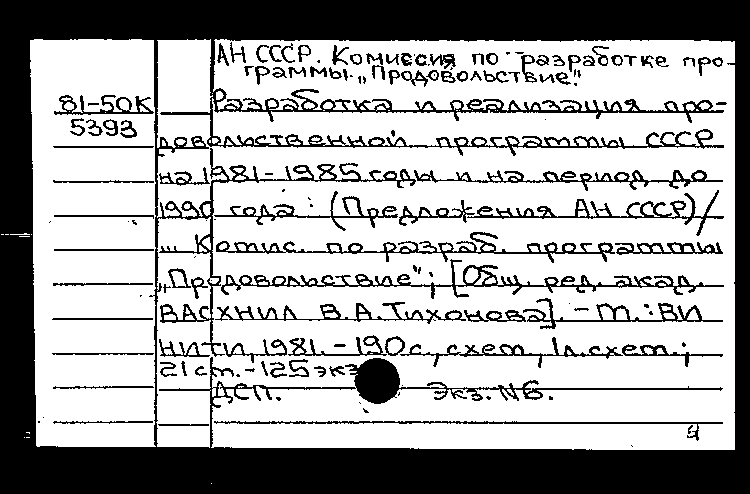 АН СССР. Комиссия по разработке про-
граммы „Продовольствие".
81-50К Разработка и реализация про-
5393
довольственной программы СССР
на 1981-1985 годы и на период до
1990 года : (Предложения АН СССР)/
... Комис. по разраб. программы
„Продовольствие"; [Общ. ред. акад.
ВАСХНИЛ В.А.Тихонова]. - М. : ВИ
НИТИ, 1981. - 190 с., схем., 1 л. схем.;
21 см. - 125 экз
ДСП. Экз. №6.